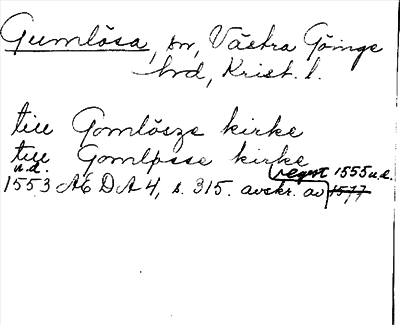 Gumlösa, sn, Västra Göinge
hrd, Krist. l.
till Gomlösze kirke
till Gomlpsse kirke
u.d. regest 1555 u.d.
1553 AE DA 4, s. 315. avskr. av 1577